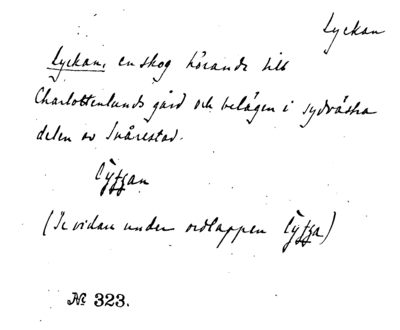 Lyckan
Lyckan, en skog hörande till
Charlottenlunds gård och belägen i sydvästra
delen av Svårestad.
(Se vidare under ordlappen
№ 323.